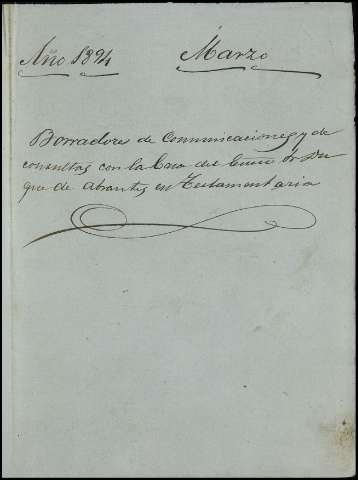 Año 1894 Marzo
Borradores de Comunicaciones y de
consultas con la Casa del Excmo Sr Du
que de Abrantes en Testamentaria